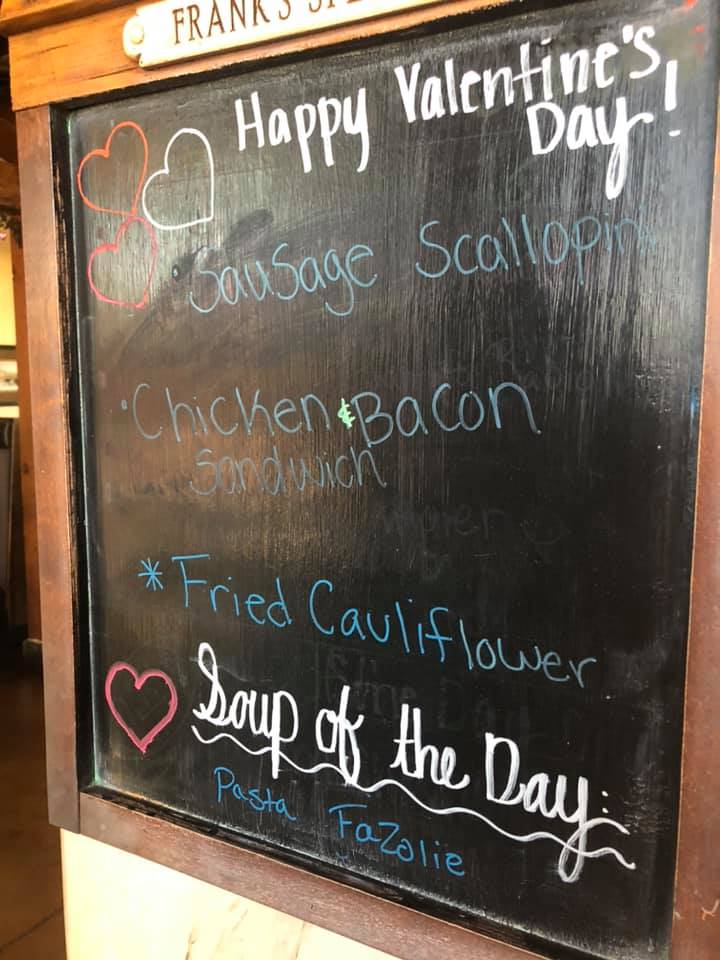 FRANK'S
Happy Valentine's
Day!
Sausage Scallopini
• Chicken & Bacon
Sandwich
* Fried Cauliflower
Soup of the Day:
Pasta FaZolie